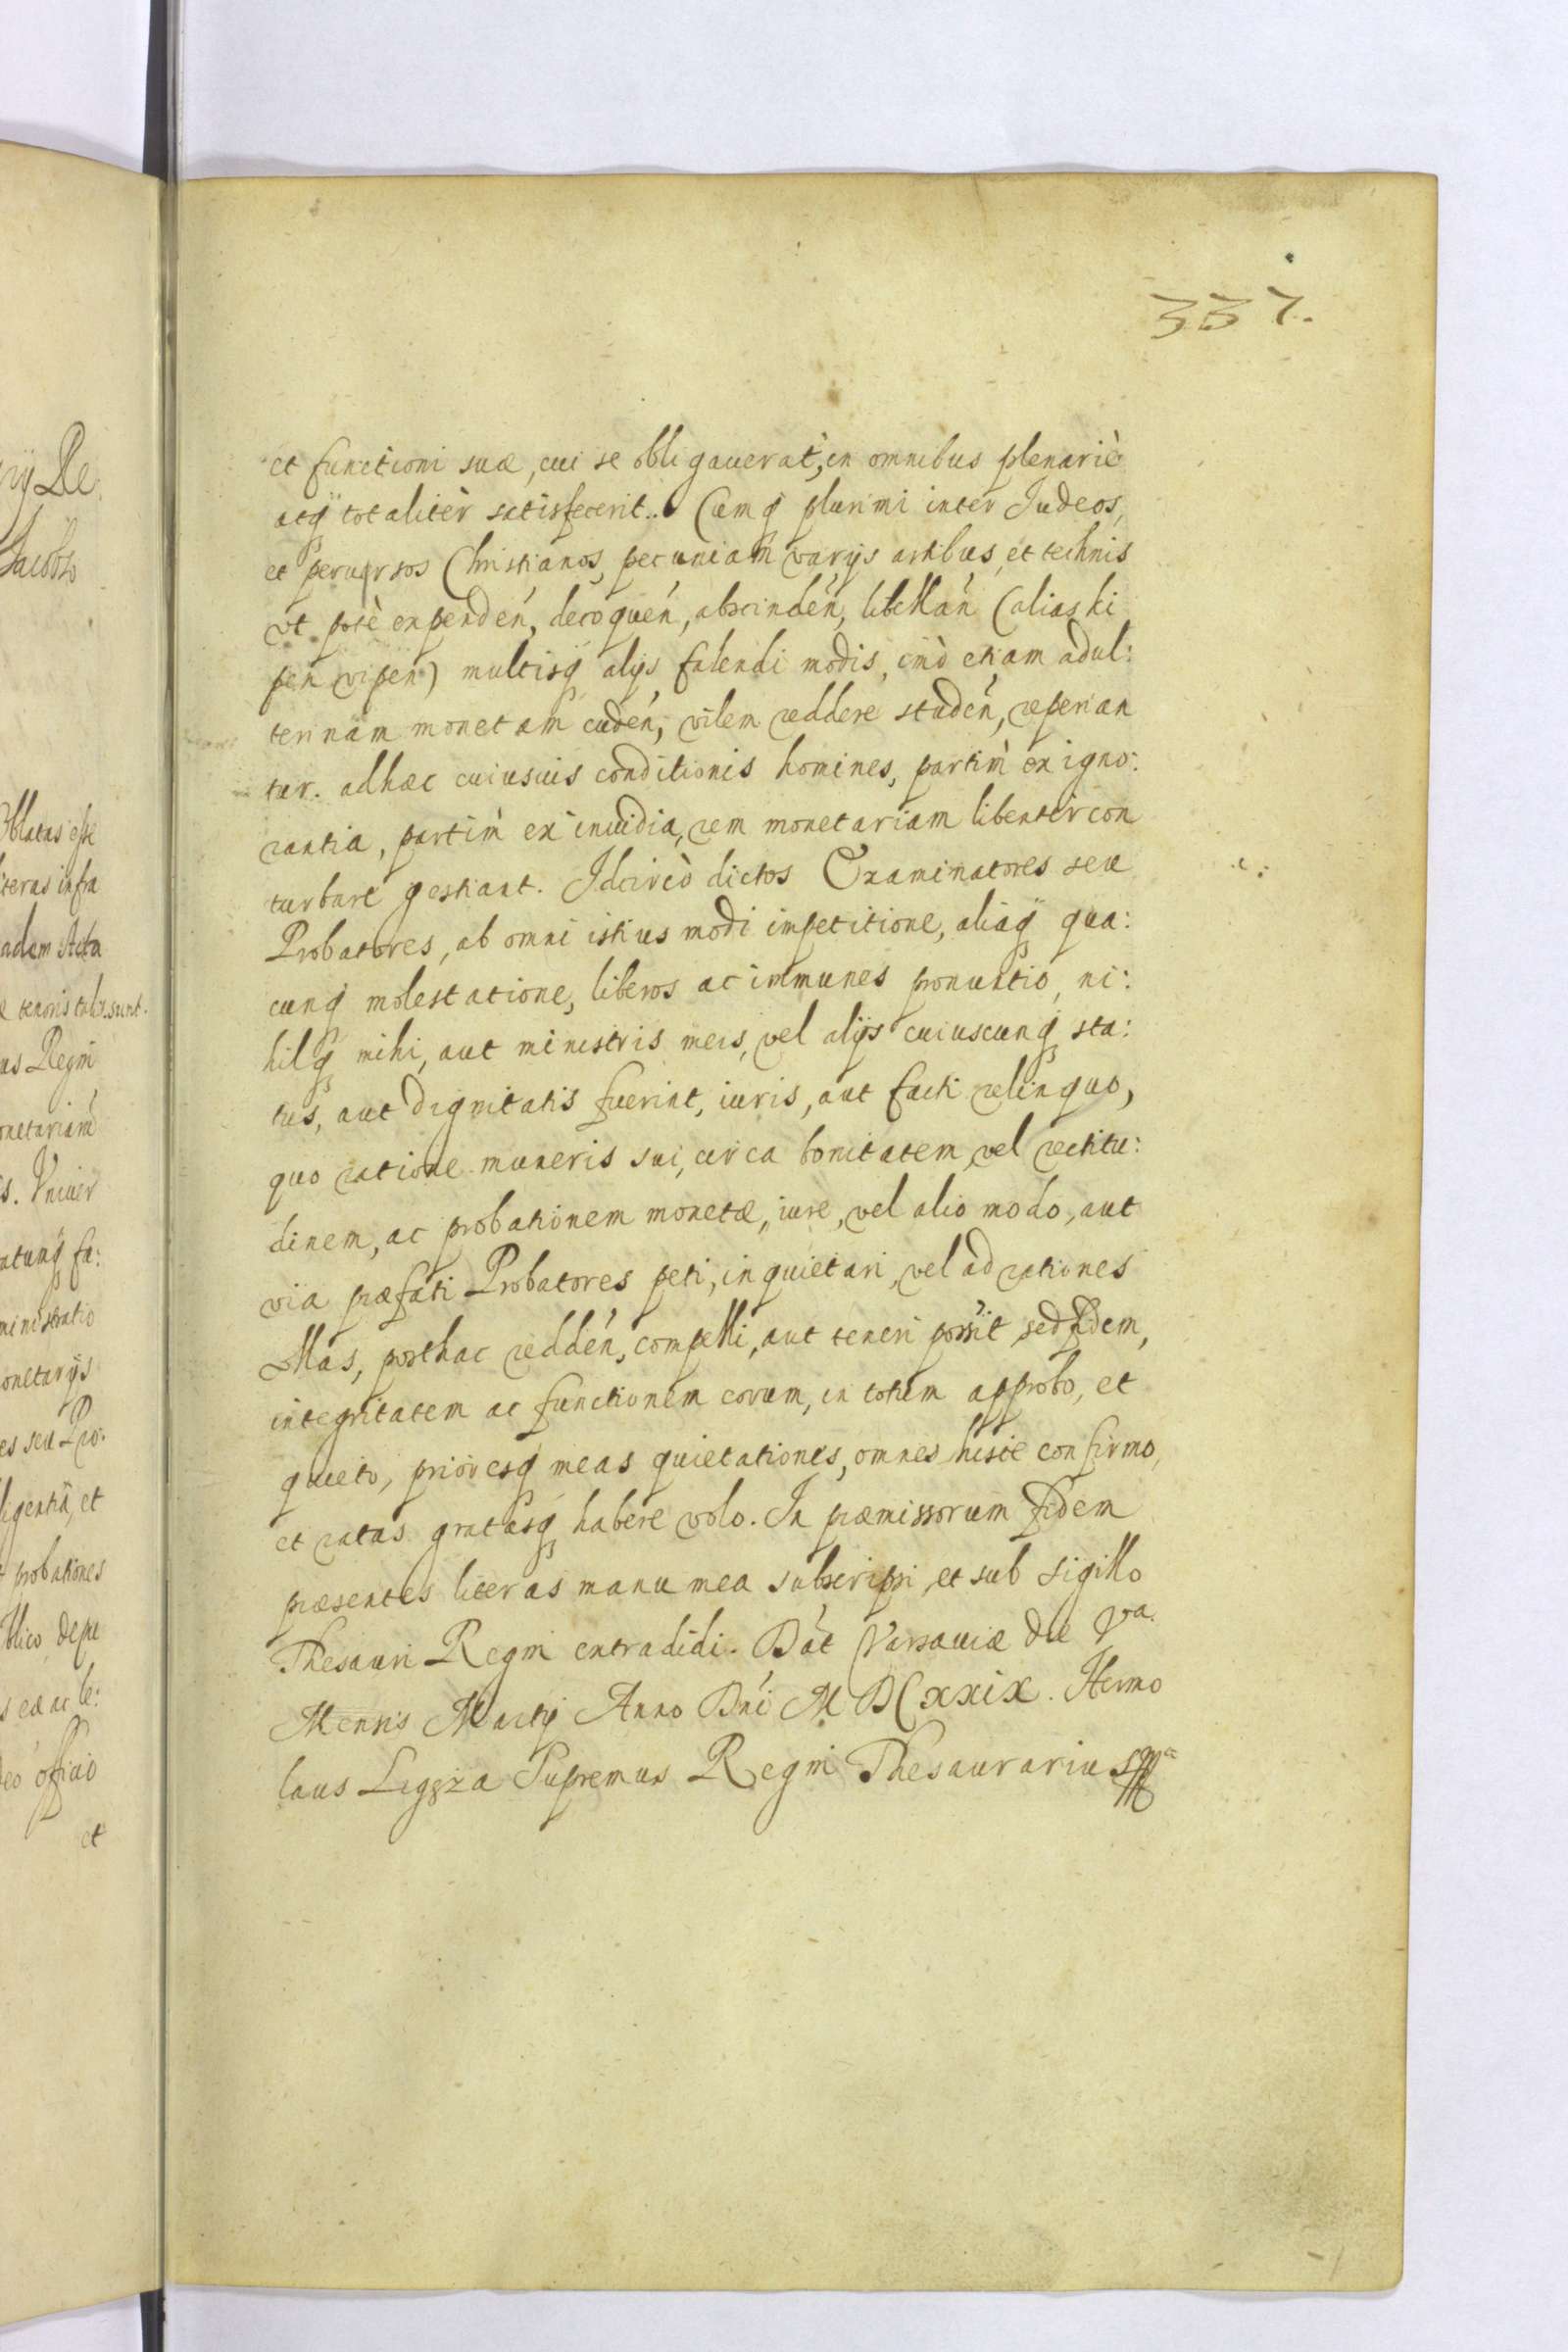 337.
et functioni suæ, cui se obligauerat, in omnibus plenariè
atq̃ totalitèr satisfecerit. Cumq̃ plurimi inter Judeos,
et peruersos Christianos, pecuniam varijs artibus, et technis
vt potè expendeń, decoqueń, abscindeń, libellań (alias ki
pen wipen) multisq̃ alijs falendi modis, imò etiam adul:
terinam monetam cudeń, vilem reddere studeń, reperian
tur. adhæc cuiusuis conditionis homines, partim̀ ex igno:
rantia, partim̀ ex inuidia, rem monetariam libentèr con
turbare gestiant. Idcircò dictos Examinatores seu
Probatores, ab omni istius modi impetitione, aliaq̃ qua:
cunq̃ molestatione, liberos ac immunes pronuntio, ni:
hilq̃ mihi, aut ministris meis, vel alijs cuiuscunq̃ sta:
tus, aut dignitatis fuerint, iuris, aut facti relinquo,
quo ratione muneris sui, circa bonitatem, vel rectitu:
dinem, ac probationem monetæ, iure, vel alio modo, aut
via præfati Probatores peti, inquietari, vel ad rationes
ullas, posthac reddeń, compelli, aut teneri possit, sed fidem,
integritatem ac functionem eorum, in totum approbo, et
quieto, prioresq̃ meas quietationes, omnes hisce confirmo,
et ratas gratasq̃ habere volo. In præmissorum fidem
præsentes literas manu mea subscripsi, et sub sigillo
Thesauri Regni extradidi. Dat́ Varsauiæ die Va.
Mensis Martij Anno Dńi MDCxxix. Hermo
laus Ligęza Supremus Regni Thesaurarius